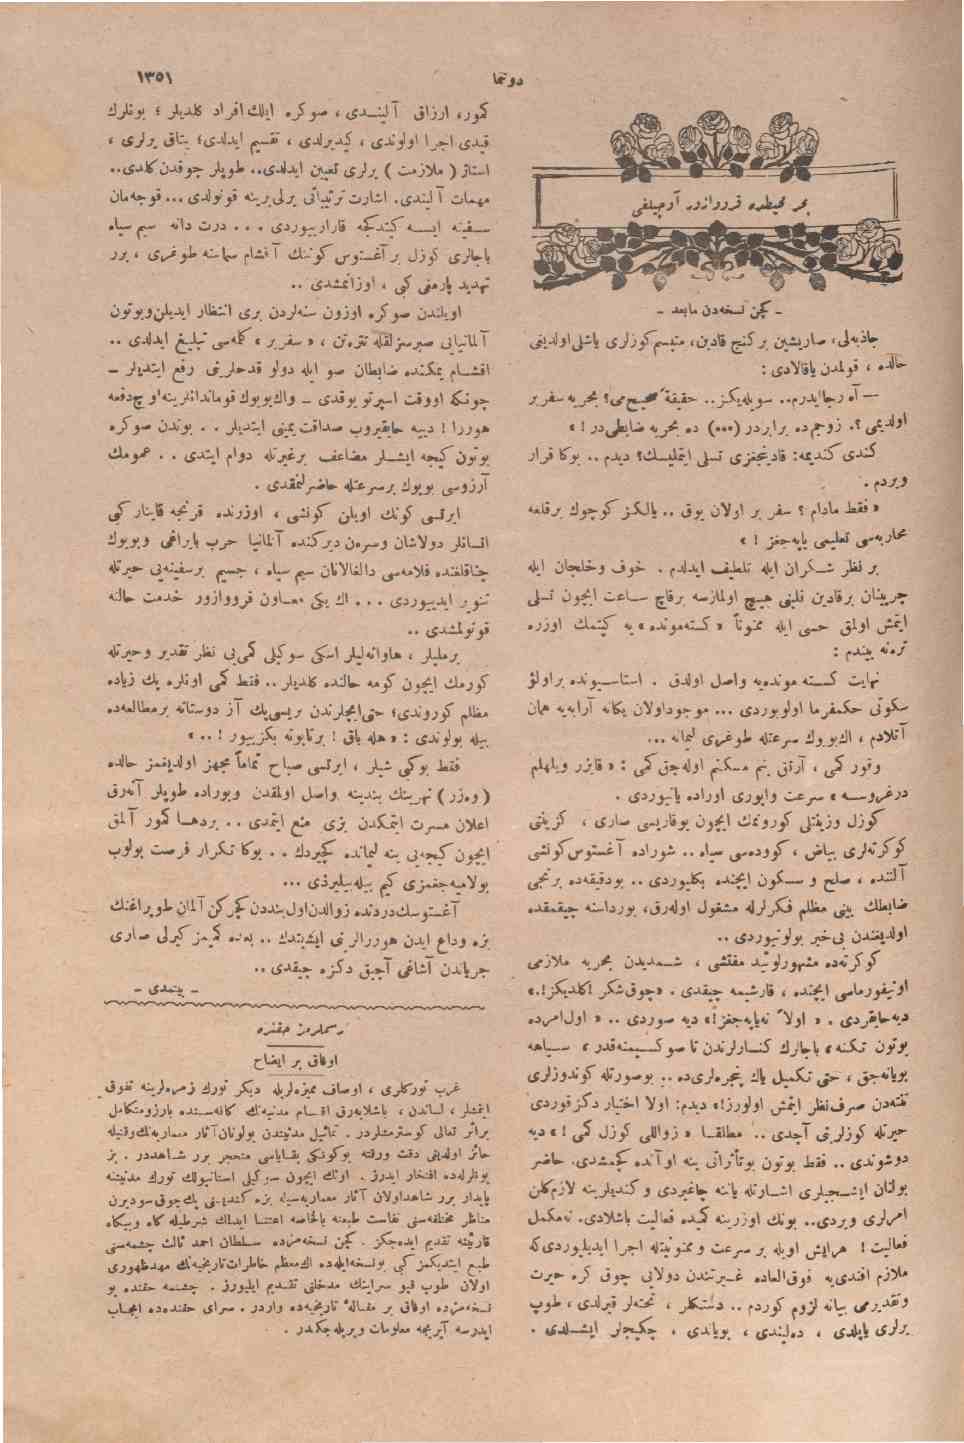 دوننما
١٣٥١
بحر محيطده قرووازور آوجيلغی
ـ كچن نسخه‌دن مابعد ـ
جاذبه‌لی، صاريشين بر كنج قادين، متبسم كوزلری ياشلی اولديغی
حالده ، قولمدن ياقالادی :
— آه رجا ايدرم.. سويله‌يكز.. حقيقةً صحيح‌می؟ بحريه سفر بر
اولديمی ؟. زوجم‌ده برابردر (•••) ده بحريه ضابطی‌در ! »
كندی كنديمه: قادينجغزی تسلی ايتمليسك؟ ديدم .. بوكا قرار
ويردم .
« فقط مادام ؟ سفر بر اولان يوق .. يالكز كوچوك بر قلعه
محاربه‌سی تعليمی ياپه‌جغز ! »
بر نظر شكران ايله تلطيف ايدلدم . خوف وخلجان ايله
چرپينان بر قادين قلبنی هيچ اولمازسه بر قاچ ساعت ايچون تسلی
ايتمش اولمق حسی ايله ممنوناً « كسته‌موندە » يه كيتمك اوزره
ترەنه بيندم :
نهايت كسته موندەيه واصل اولدق . استاسيونده بر اولؤ
سكوتی حكمفرما اولويوردی ... موجود اولان يكانه آرابه‌يه همان
آتلادم ، اك بويوك سرعتله طوغری ليمانه ...
وقور كمی ، آرتق بنم مسكنم اوله‌جق كمی : « قايزر ويلهلم
در غروسه » سرعت واپوری اوراده ياتيوردی .
كوزل وزينتلی كورونمك ايچون بوقاريسی صاری ، كزينتی
كوكرته‌لری بياض ، كووده‌سی سياه .. شوراده آغستوس كونشی
آلتنده ، صلح و سكون ايچنده بكليوردی .. بودقيقه‌ده برنجی
ضابطك بينی مظلم فكرلرله مشغول اوله‌رق، بورداسنه چيقمقده
اولديغندن بی‌خبر بولونيوردی ..
كوكرته‌ده مشهور لوئيد مفتشی ، شمديدن بحريه ملازمی
اونيفورماسی ايچنده ، قارشيمه چيقدی . «چوق شكر ! كلديكز !.»
ديه حايقردی . « اولاً نه‌ياپه‌جغز !» ديه صوردی .. « اول امرده
بوتون تكنه ، باجالرك كنارلرندن تا صو كسيمنه‌قدر ، سياهه
بويانه‌جق ، حتی تكميل ياك پنجره‌لری‌ده .. بوصورتله كوندوزلری
تنته‌دن صرف‌نظر ايتمش اولورز!» ديدم: اولا اختيار دكز قوردی
حيرتله كوزلرينی آچدی .. مطلقا « زواللی كوزل كمی ! » ديه
دوشوندی .. فقط بوتون بوتأثراتی ينه اوآنده كچمشدی. حاضر
بولنان ايشجيلری اشارتله ياننه چاغيردی و كنديلرينه لازم كلن
امرلری ويردی .. بونك اوزرينه كميده فعاليت باشلادی. نه مكمل
فعاليت ! هر ايش اويله بر سرعت و ممنونيتله اجرا ايديليوردی كه
ملازم افندی‌يه فوق‌العاده غيرتندن دولايی چوق كره حيرت
وتقديرمی بيانه لزوم كوردم .. دستكلر ، تخته‌لر قيرلدی ، طوپ
يرلری ياپلدی ، ده‌لينـدی ، بوياندی ، چكيجلر ايشلدی .
كمور، ارزاق آلينـدی ، صوكره ايلك افراد كلديلر ؛ بونلرك
قيدی اجرا اولوندی ، كيديرلدی ، تقسيم ايدلدی؛ يتاق يرلری ،
استاژ ( ملازمت ) يرلری تعيين ايدلدی.. طوپلر چوقدن كلدی..
مهمات آلیندی. اشارت ترتيباتی يرلی يرينه قونولدی ... قوجه‌مان
سفينه ايسه كيتدكجه قارارييوردی . . . درت دانه سيم سياه
باجالری كوزل بر آغستوس كوننك آقشام سماسنه طوغری ، برر
تهديد پارمغی كبی ، اوزانمشدی ..
اويلندن صوكره اوزون سنه‌لردن بری انتظار ايديلن وبوتون
آلمانيايی صبرسزلقله تترەتن ، « سفربر » كلمه‌سی تبليغ ايدلدی ..
اقشام يمكنده ضابطان صو ايله دولو قدحلرينی رفع ايتديلر ـ
چونكه اووقت اسپرتو يوقدی ـ واك بويوك قوماندانلرينه اوچ دفعه
هوررا ! دييه حايقيروب صداقت يمينی ايتديلر . . بوندن صوكره
بوتون كيجه ايشلر مضاعف بر غيرتله دوام ايتدی . . عمومك
آرزوسی بويوك بر سرعتله حاضرلنمقدی .
ايرتسی كونك اويلن كونشی ، اوزرنده قرنجه قاينار كبی
انسانلر دولاشان وسرەن ديركنده آلمانيا حرب بايراغی وبويوك
چناقلغنده فلامه‌سی دالغالانان سيم سياه ، جسيم بر سفينه‌يی حيرتله
تنوير ايدييوردی . . . اك يكی معاون قرووازور خدمت حالنه
قونولمشدی ..
برمليلر ، هاوانه‌ليلر اسكی سوكيلی كمی‌يی نظر تقدير وحيرتله
كورمك ايچون كومه حالنده كلديلر .. فقط كمی اونلره پك زياده
مظلم كوروندی؛ حتی ايچلرندن بريسی پك آز دوستانه بر مطالعه‌ده
بيله بولوندی : « هله باق ! بر تابوته بكزييور ! .. »
فقط بوكبی شيلر ، ايرتسی صباح تماماً مجهز اولديغمز حالده
( وەزر ) نهرينك بندينه واصل اولمقدن وبوراده طوپلر آته‌رق
اعلان مسرت ايتمكدن بزی منع ايتمدی .. بردها كمور آلمق
ايچون كيجه‌يی ينه ليمانده كچيردك . . بوكا تكرار فرصت بولوب
بولاميه‌جغمزی كيم بيله‌بيليردی ...
آغستوسك دردنده زوالدن اول بنددن كچركن آلمان طوپراغنك
بزه وداع ايدن هوررالرينی ايشيتدك .. بعده كميمز كيرلی صاری
جرياندن آشاغی آچيق دكزه چيقدی ..
ـ بيتمدی ـ
رسملرمز حقنده
اوفاق بر ايضاح
غرب توركلری ، اوصاف مميزه‌لريله ديكر تورك زمره‌لرينه تفوق
ايتمشلر ، لساندن ، باشلايه‌رق اقسام مدنيه‌نك كافه‌سنده بارز ومتكامل
بر اثر تعالی كوسترمشلردر . تماثيل مدنيتدن بولونان آثار معماريه‌نك وقتيله
حائز اولديغی دقت ورقته بوكونكی بقاياسی متحجر برر شاهددر . بز
بونلرله‌ده افتخار ايدرز . اونك ايچون سوكيلی استانبولك تورك مدنيتنه
پايدار برر شاهد اولان آثار معماريه‌سيله بزه كندينی پك چوق سوديرن
مناظر مختلفه‌سنی نفاست طبعنه بالخاصه اعتنا ايدلك شرطيله كاه وبيكاه
قارئينه تقديم ايده‌جكز . كچن نسخه‌مزده سلطان احمد ثالث چشمه‌سنی
طبع ايتديكمز كبی بونسخه‌ايله‌ده اك معظم خاطرات تاريخيه‌نك مهد ظهوری
اولان طوپ قپو سراينك مدخلنی تقديم ايليورز . چشمه حقنده بو
نسخه‌مزده اوفاق بر مقالۀ تاريخيه‌ده واردر . سرای حقنده‌ده ايجاب
ايدرسه آيريجه معلومات ويريله‌جكدر .